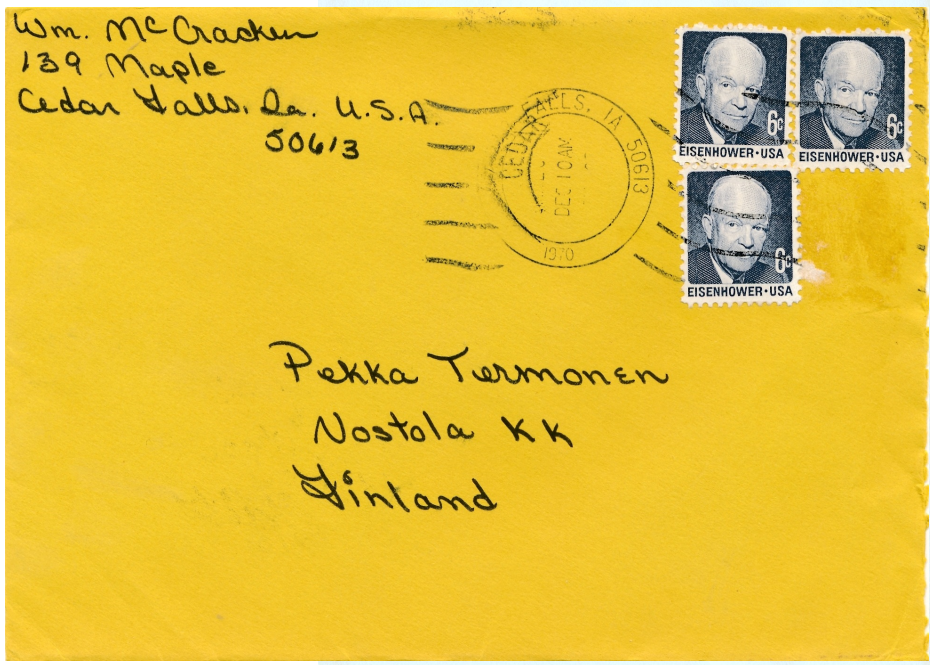 Wm. McCracken
139 Maple
Cedar Falls, Ia. U.S.A.
50613
CEDAR FALLS, IA 50613
DEC 10 AM
1970
6c
EISENHOWER·USA
6c
EISENHOWER·USA
6c
EISENHOWER·USA
Pekka Termonen
Nostola KK
Finland